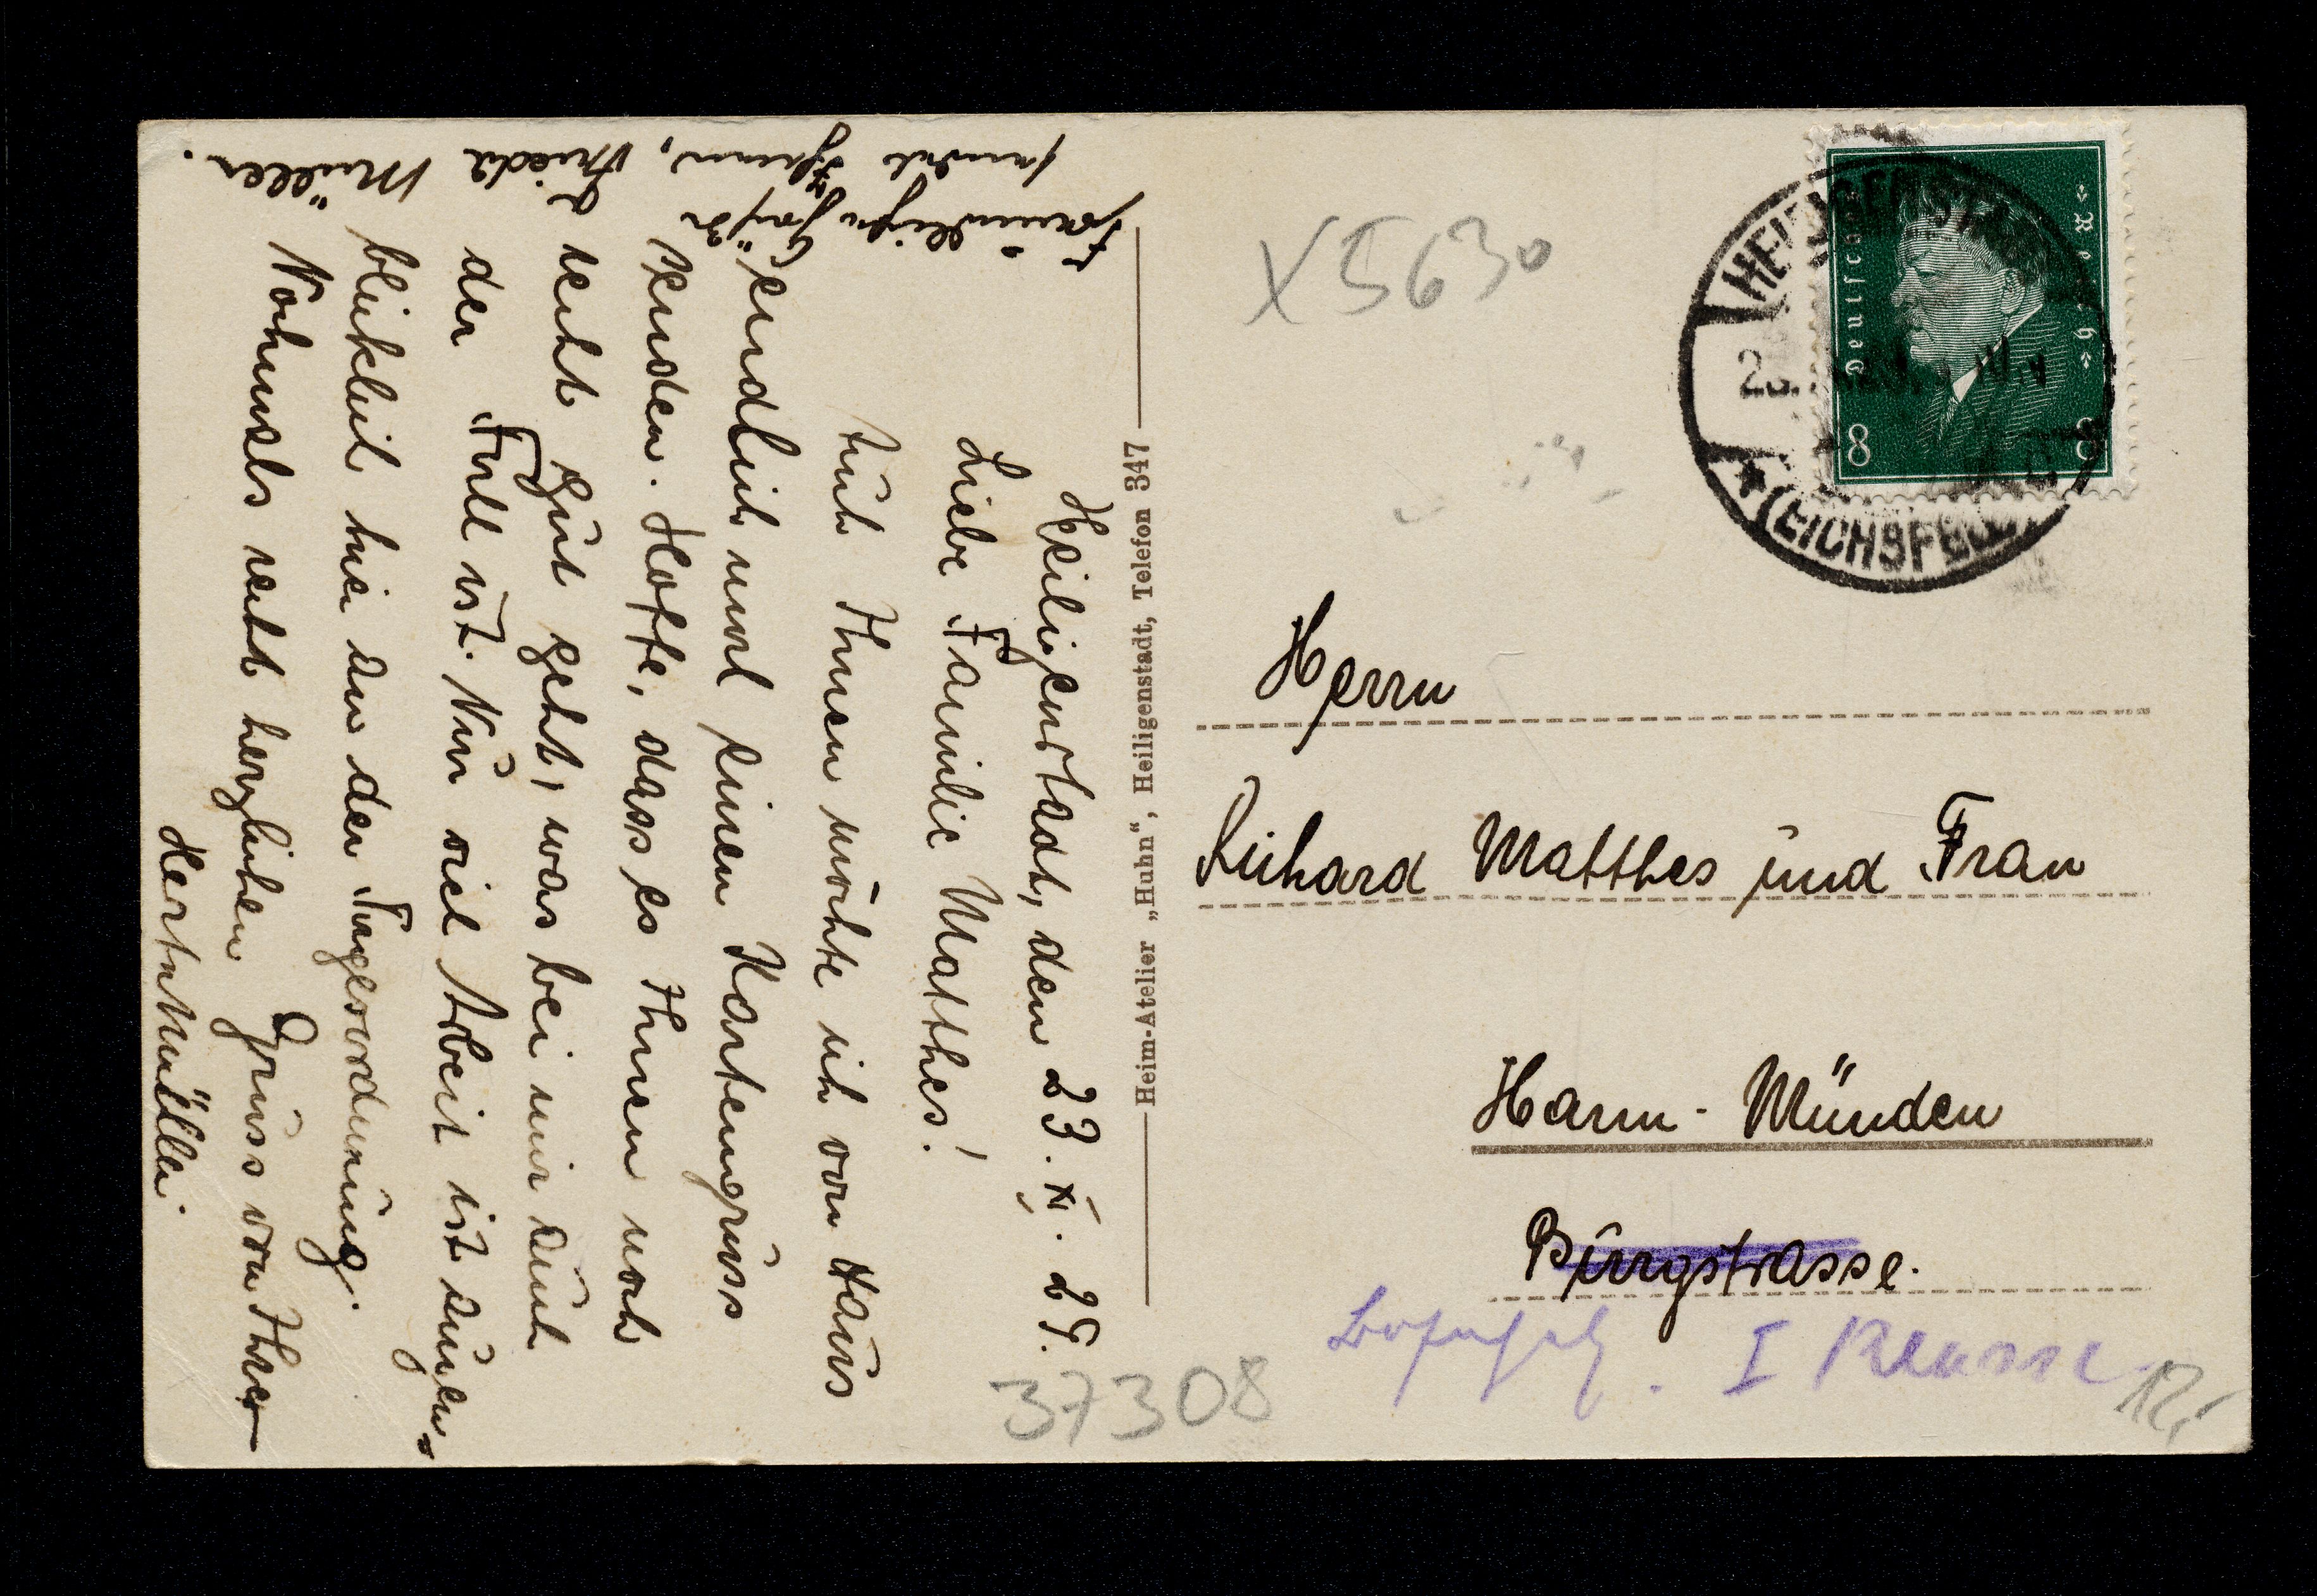 Heiligenstadt, den 23. XI. 29.
Liebe Familie Matthes!
Auch Ihnen möchte ich von Haus
endlich mal einen Kartengruss
senden. Hoffe, dass es Ihnen noch
recht gut geht, was bei mir auch
der Fall ist. Nur viel Arbeit ist augen-
blicklich hier an der Tagesordnung.
Nochmals recht herzlichen Gruss von Ihrer
Herta Müller.
Freundliche Grüße
sendet Ihnen, Frieda Müller.
Heim-Atelier „Huhn“, Heiligenstadt, Telefon 347
X5630
HEILIGENSTADT
(EICHSFELD)
Deutsches Reich
8 8
Herrn
Richard Matthes und Frau
Hann-Münden
Burgstrasse.
I Klasse
12,-
37308